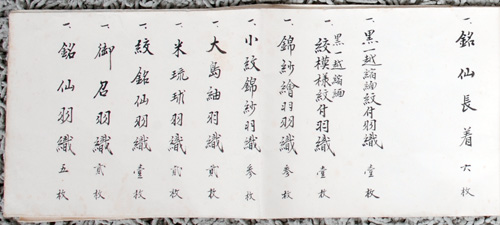 一、銘仙長着 六枚
一、黒一越縮緬紋付羽織 壹枚
一、黒一越縮緬
絞模様紋付羽織 壹枚
一、錦紗繪羽羽織 参枚
一、小紋錦紗羽織 参枚
一、大島紬羽織 貳枚
一、米琉球羽織 貳枚
一、絞銘仙羽織 壹枚
一、御召羽織 貳枚
一、銘仙羽織 五枚